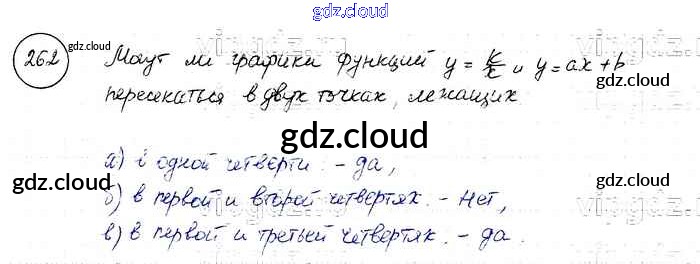 gdz.cloud
262 Могут ли графики функций y = k/x и y = ax + b
gdz.cloud gdz.cloud
пересекаться в двух точках, лежащих
gdz.cloud
а) в одной четверти. - да,
gdz.cloud gdz.cloud
б) в первой и второй четвертях. - Нет,
в) в первой и третьей четвертях. - да.
gdz.cloud